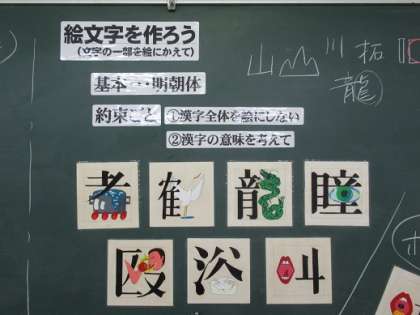 絵文字を作ろう
(文字の一部を絵にかえて)
基本…明朝体
約束ごと
①漢字全体を絵にしない
②漢字の意味を考えて
山
川
拓
龍
煮
鶴
龍
瞳
殴
浴
叫